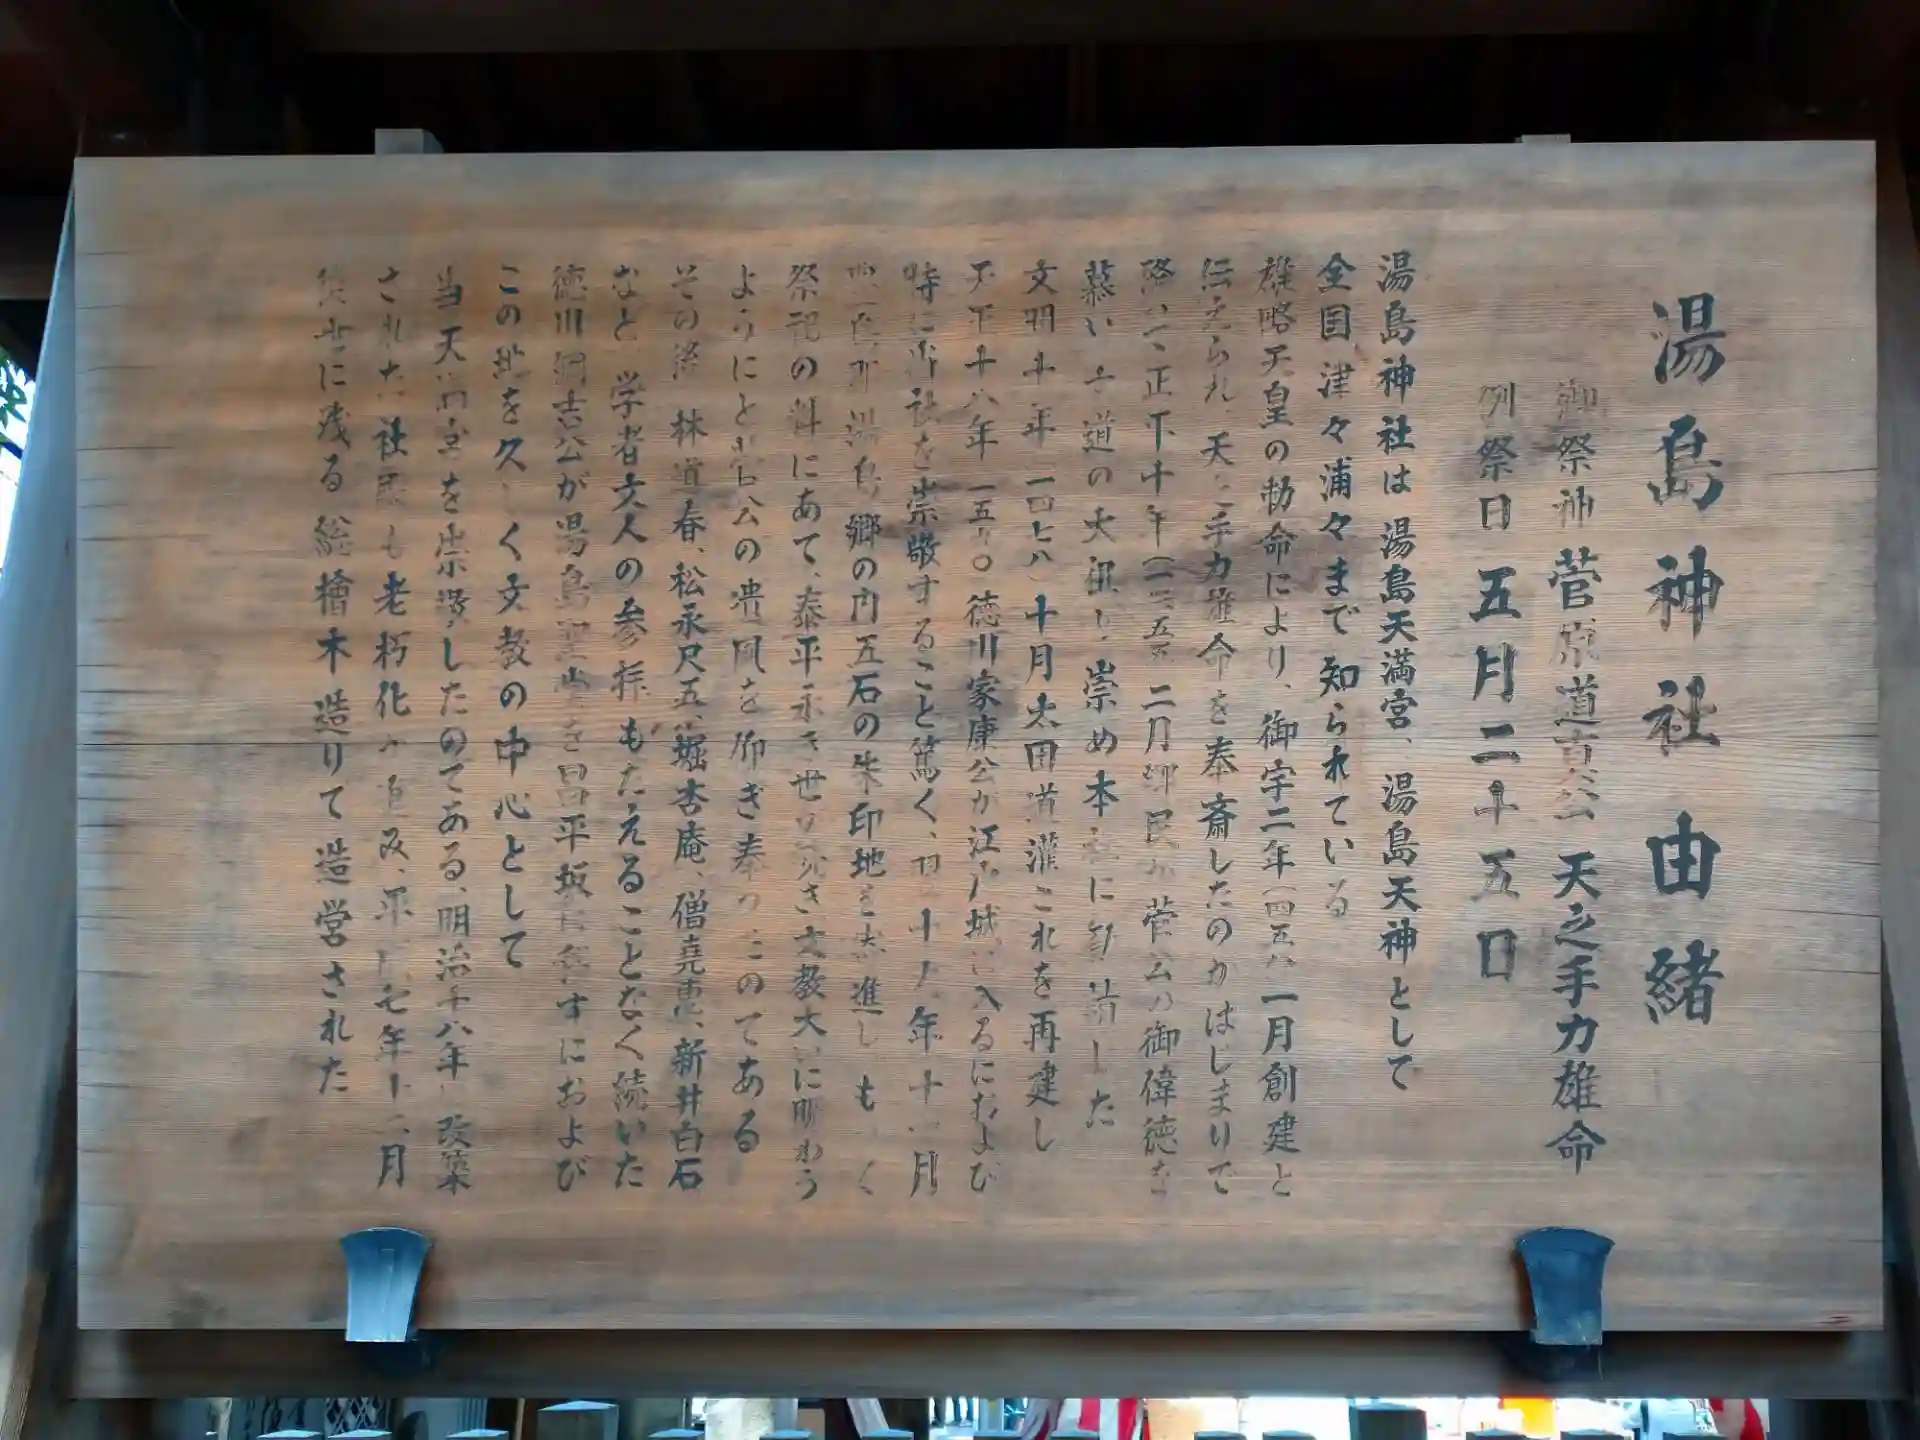 湯島神社由緒
御祭神 菅原道真公 天之手力雄命
例祭日 五月二十五日
湯島神社は湯島天満宮、湯島天神として
全国津々浦々まで知られている
雄略天皇の勅命により、御宇二年(四五八)一月創建と
伝えられ、天之手力雄命を奉斎したのがはじまりで
降って正平十年(一三五五)二月郷民が菅公の御偉徳を
慕い 文道の大祖と崇め本社に勧請した
文明十年(一四七八)十月太田道灌これを再建し
天正十八年(一五九〇)徳川家康公が江戸城に入るにおよび
特に当社を崇敬すること篤く、十九年十一月
豊島郡湯島郷の内五石の朱印地を寄進し もく
祭祀の料にあて、泰平永き世 文教大いに賑わう
ようにと菅公の遺風を仰ぎ奉ったのである
その後 林道春、松永尺五、堀杏庵、僧堯恵、新井白石
など、学者文人の参拝もたえることなく続いた
徳川綱吉公が湯島聖堂を昌平坂に移すにおよび
この地を久しく文教の中心として
当天満宮を崇敬したのである、明治十八年に改築
された社殿も老朽化が進み、平成七年十二月
後世に残る総檜木造りで造営された